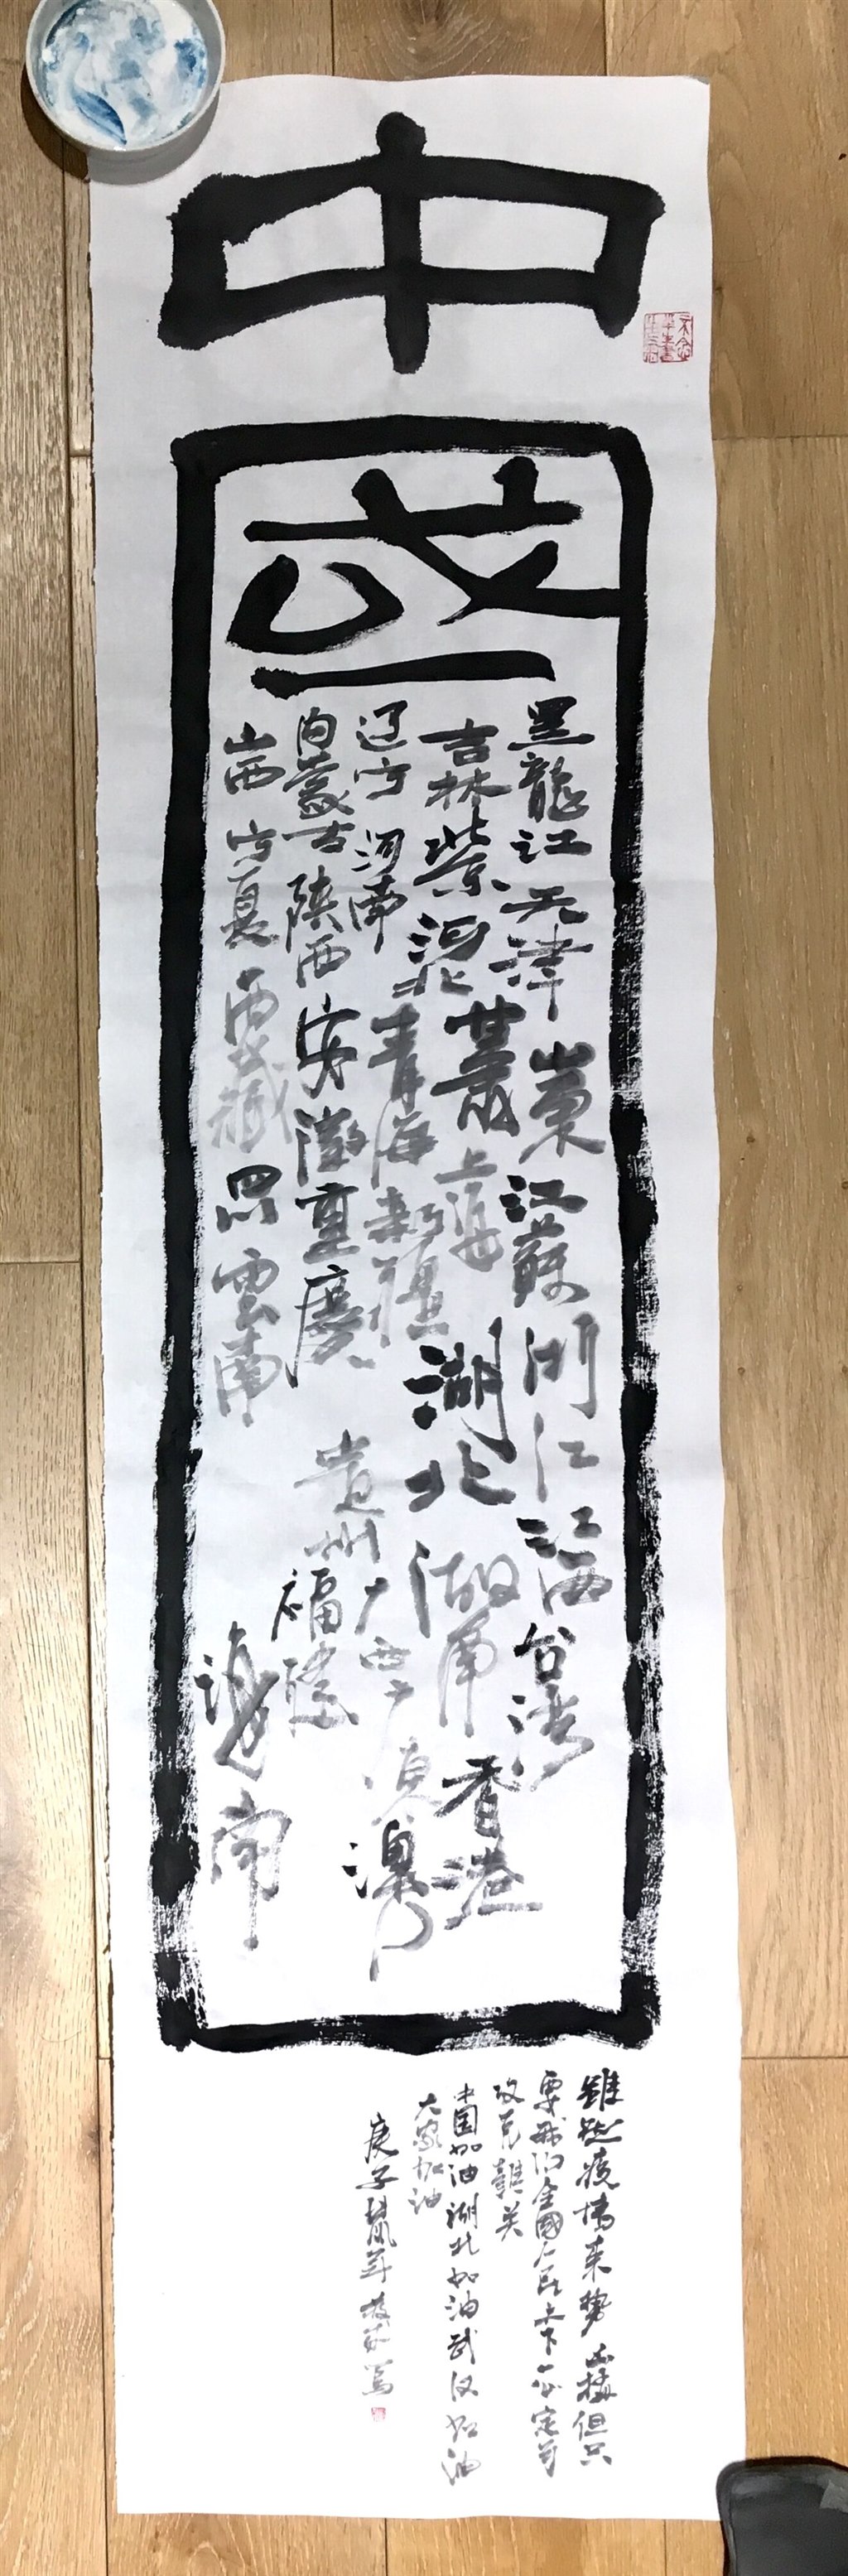 中
國
黑龍江 天津 山東 江蘇 浙江 江西 台湾
吉林 北京 河北 甘肅 上海 湖北 湖南 香港
辽宁 河南 青海 新疆 贵州 广西 广东 澳门
内蒙古 陕西 安徽 重慶 福建
山西 宁夏 西藏 四川 雲南 海南
雖然疫情来势凶猛但只
要我们全國人民上下一心定可
攻克難关
中国加油湖北加油武汉加油
大家加油
庚子鼠年